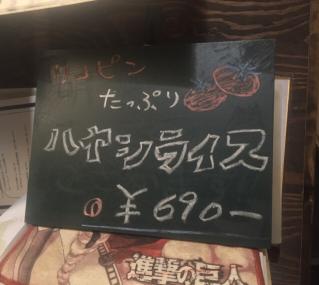 リコピン
たっぷり
ハヤシライス
¥690-
進撃の巨人